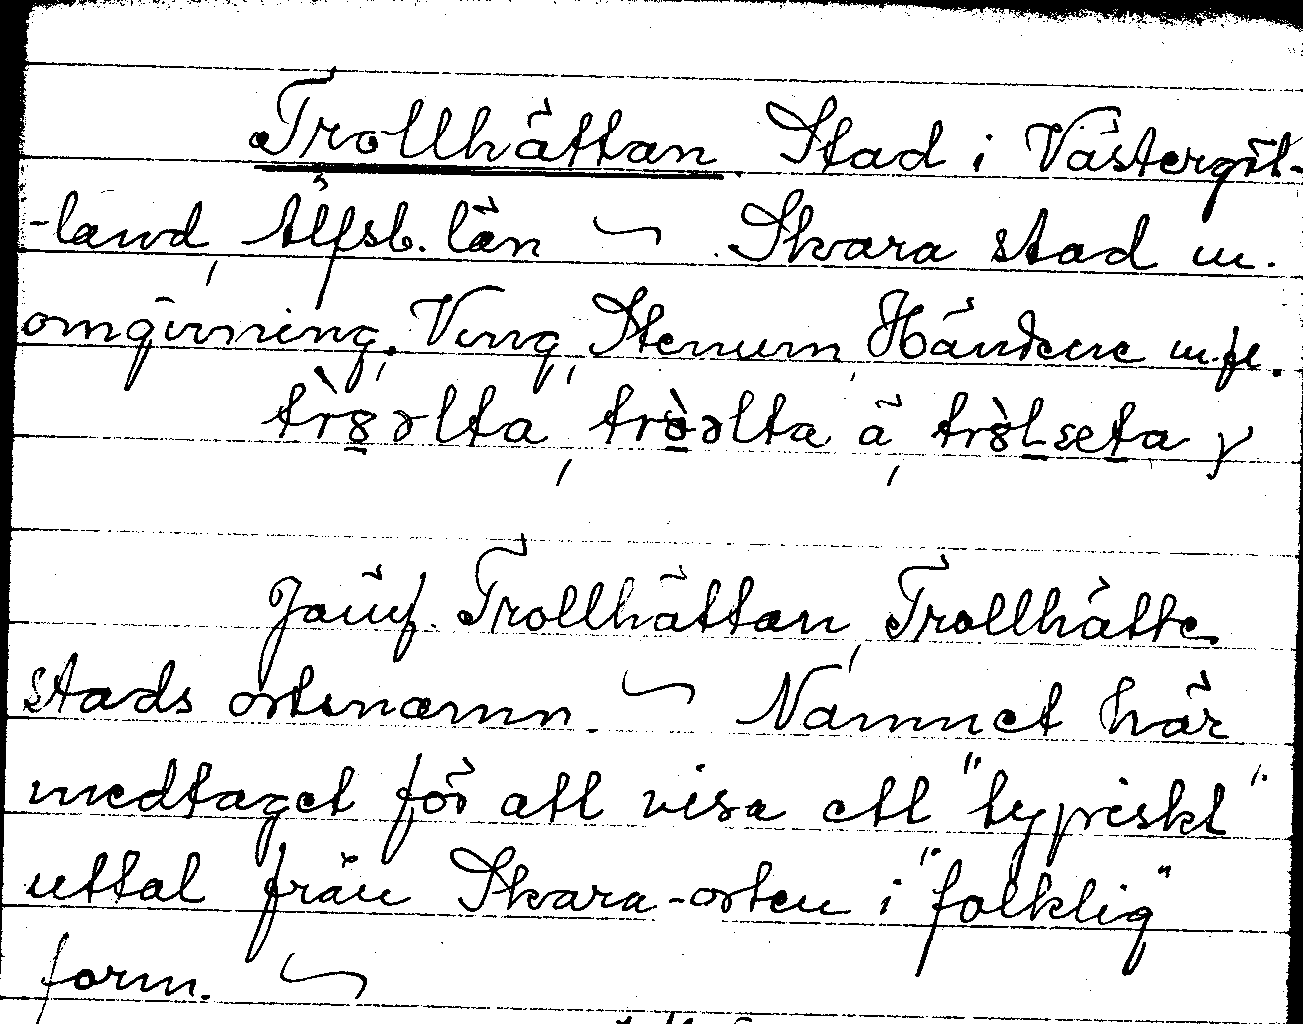 Trollhättan Stad i Västergöt-
-land, Älfsb. län ~ Skara stad m.
omgivning. Ving, Stenum, Händene m.fl.
Jämf. Trollhättan, Trollhätte
stads ortsnamn. ~ Namnet här
medtaget för att visa ett "typiskt"
uttal från Skara-orten i "folklig"
form. ~